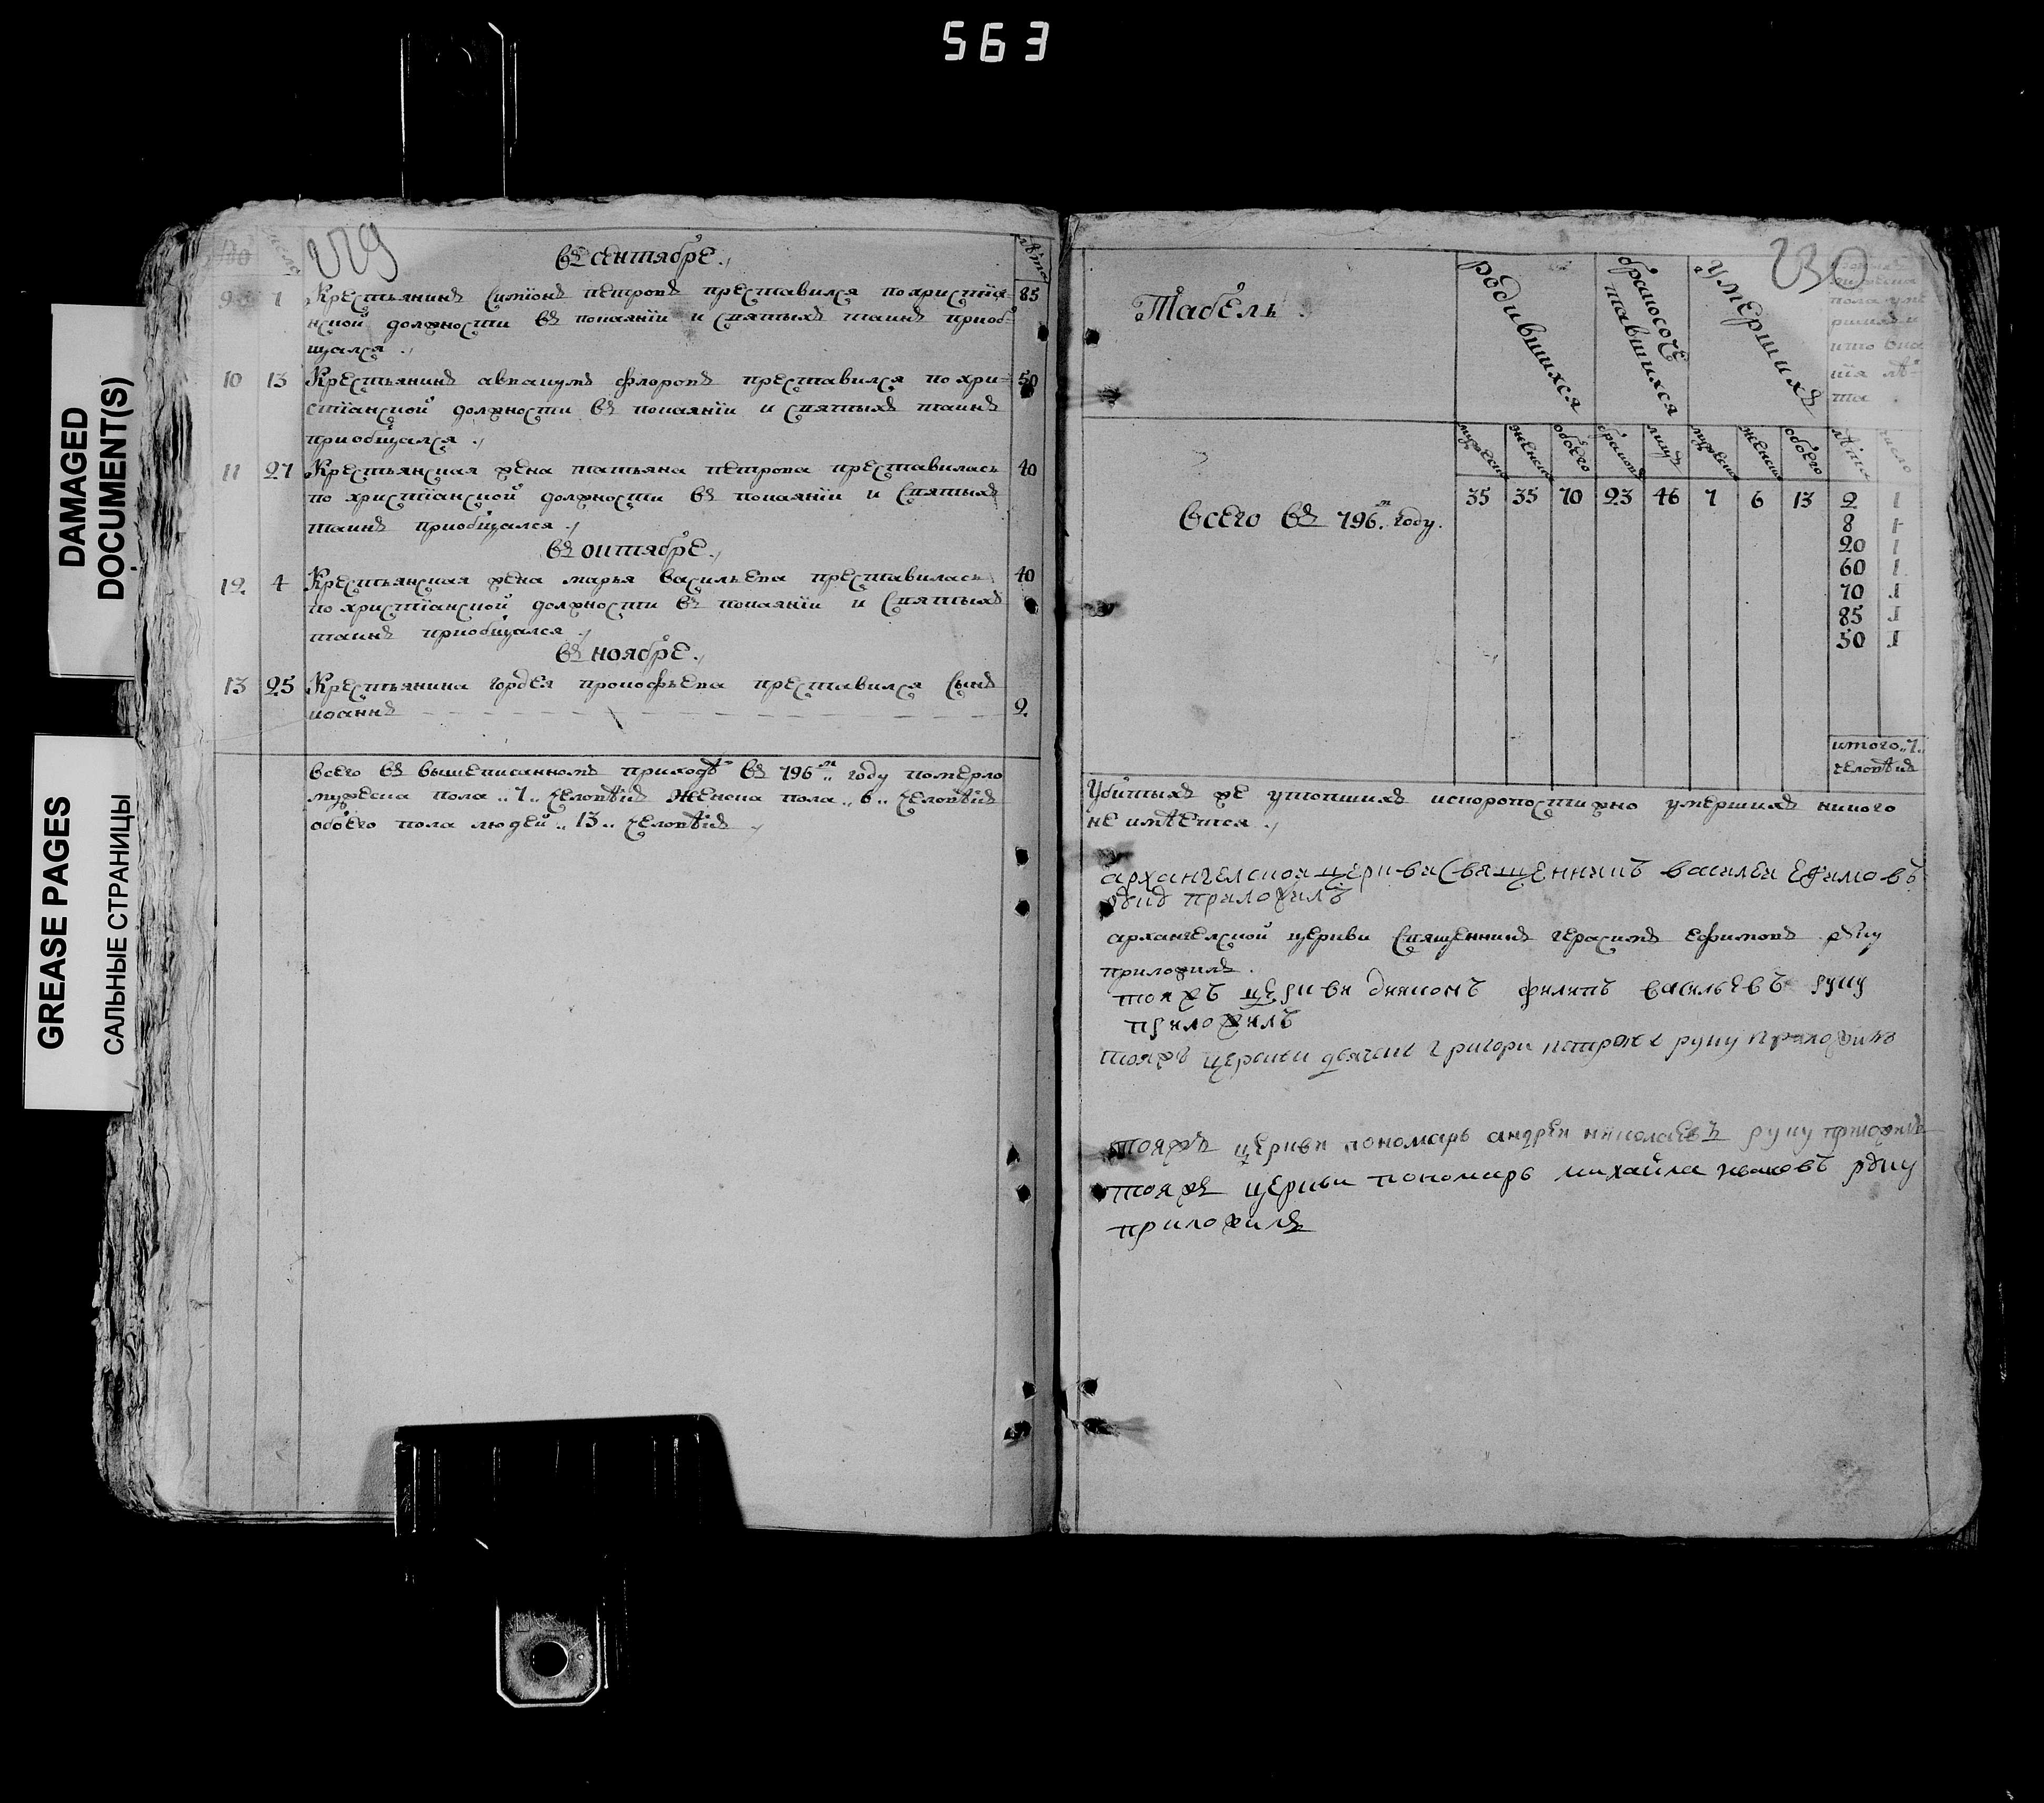 563
DAMAGED
DOCUMENT(S)
GREASE PAGES
САЛЬНЫЕ СТРАНИЦЫ
229
числа
лѣта
въ сентябрѣ.,
9 1 Крестьянинъ Симіонъ петровъ преставился по христїа- 85
нской должности въ покаянїи и Святыхъ таинъ приоб-
щался .,
10 13 Крестьянинъ аввакумъ флоровъ преставился по хри- 50
стїанской должности въ покаянїи и Святыхъ таинъ
приобщался .,
11 27 Крестьянская жена татьяна петрова преставилась 40
по христїанской должности въ покаянїи и Святыхъ
таинъ приобщался .,
въ октябрѣ.,
12 4 Крестьянская жена марья васильева преставилась 40
по христїанской должности въ покаянїи и Святыхъ
таинъ приобщался .,
въ ноябрѣ.,
13 25 Крестьянина гордея прокофьева преставился Сынъ
иоаннъ 2
всего въ вышеписанномъ приходѣ въ 796м году померло
мужеска пола „7„ человѣкъ женска пола „6„ человѣкъ
обоего пола людей „13„ человѣкъ .,
230
Табель
родившихся
бракосоче
тавшихся
Умершихъ
пола уме
ршихъ и
кия лѣ-
та
мужеска женска обоего браковъ лицъ мужеска женска обоего лѣта число
всего въ 796.м году. 35 35 70 23 46 7 6 13 2 1
8 1
20 1
60 1
70 1
85 1
50 1
итого „7„
человѣкъ
Убитыхъ же утопшихъ искоропостижно умершихъ никого
не имѣется .,
архангелской церкви Священникъ василеи Ефимовъ
приложилъ
архангелской церкви Священникъ герасимъ ефимовъ руку
приложилъ .
тояжъ церкви дияконъ филипъ васильевъ руку
приложилъ
тояжъ церкви дьячекъ григори петровъ руку приложилъ
тояжъ церкви пономарь андреи николаевъ руку приложилъ
тояжъ церкви пономарь михайла ивановъ руку
приложилъ